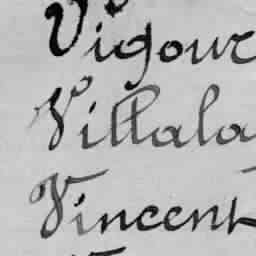 Vigour
Villala
Vincent